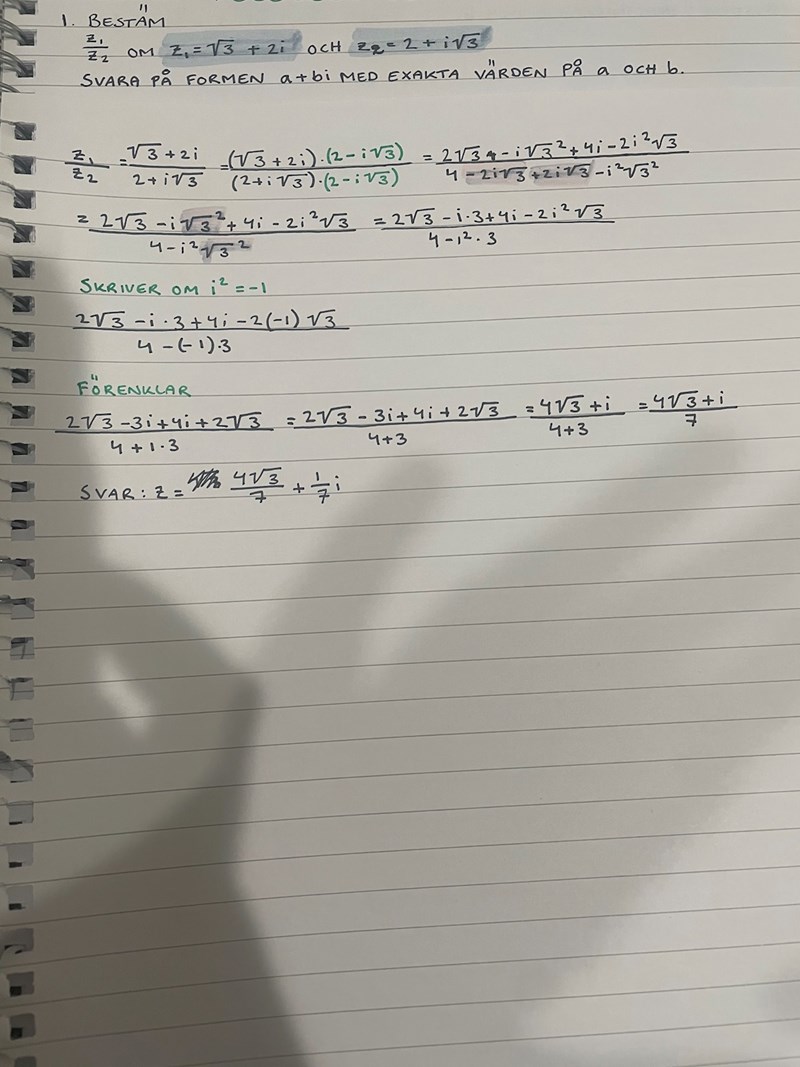 1. BESTÄM
z₁/z₂ OM z₁ = √3 + 2i OCH z₂ = 2 + i√3
SVARA PÅ FORMEN a+bi MED EXAKTA VÄRDEN PÅ a OCH b.
z₁/z₂ = (√3 + 2i)/(2 + i√3) = (√3 + 2i)·(2 - i√3)/(2 + i√3)·(2 - i√3) = (2√3 - i√3² + 4i - 2i²√3)/(4 - 2i√3 + 2i√3 - i²√3²)
= (2√3 - i√3² + 4i - 2i²√3)/(4 - i²√3²) = (2√3 - i·3 + 4i - 2i²√3)/(4 - i²·3)
SKRIVER OM i² = -1
(2√3 - i·3 + 4i - 2(-1)√3)/(4 - (-1)·3)
FÖRENKLAR
(2√3 - 3i + 4i + 2√3)/(4 + 1·3) = (2√3 - 3i + 4i + 2√3)/(4+3) = (4√3 + i)/(4+3) = (4√3 + i)/7
SVAR: z = 4√3/7 + 1/7 i